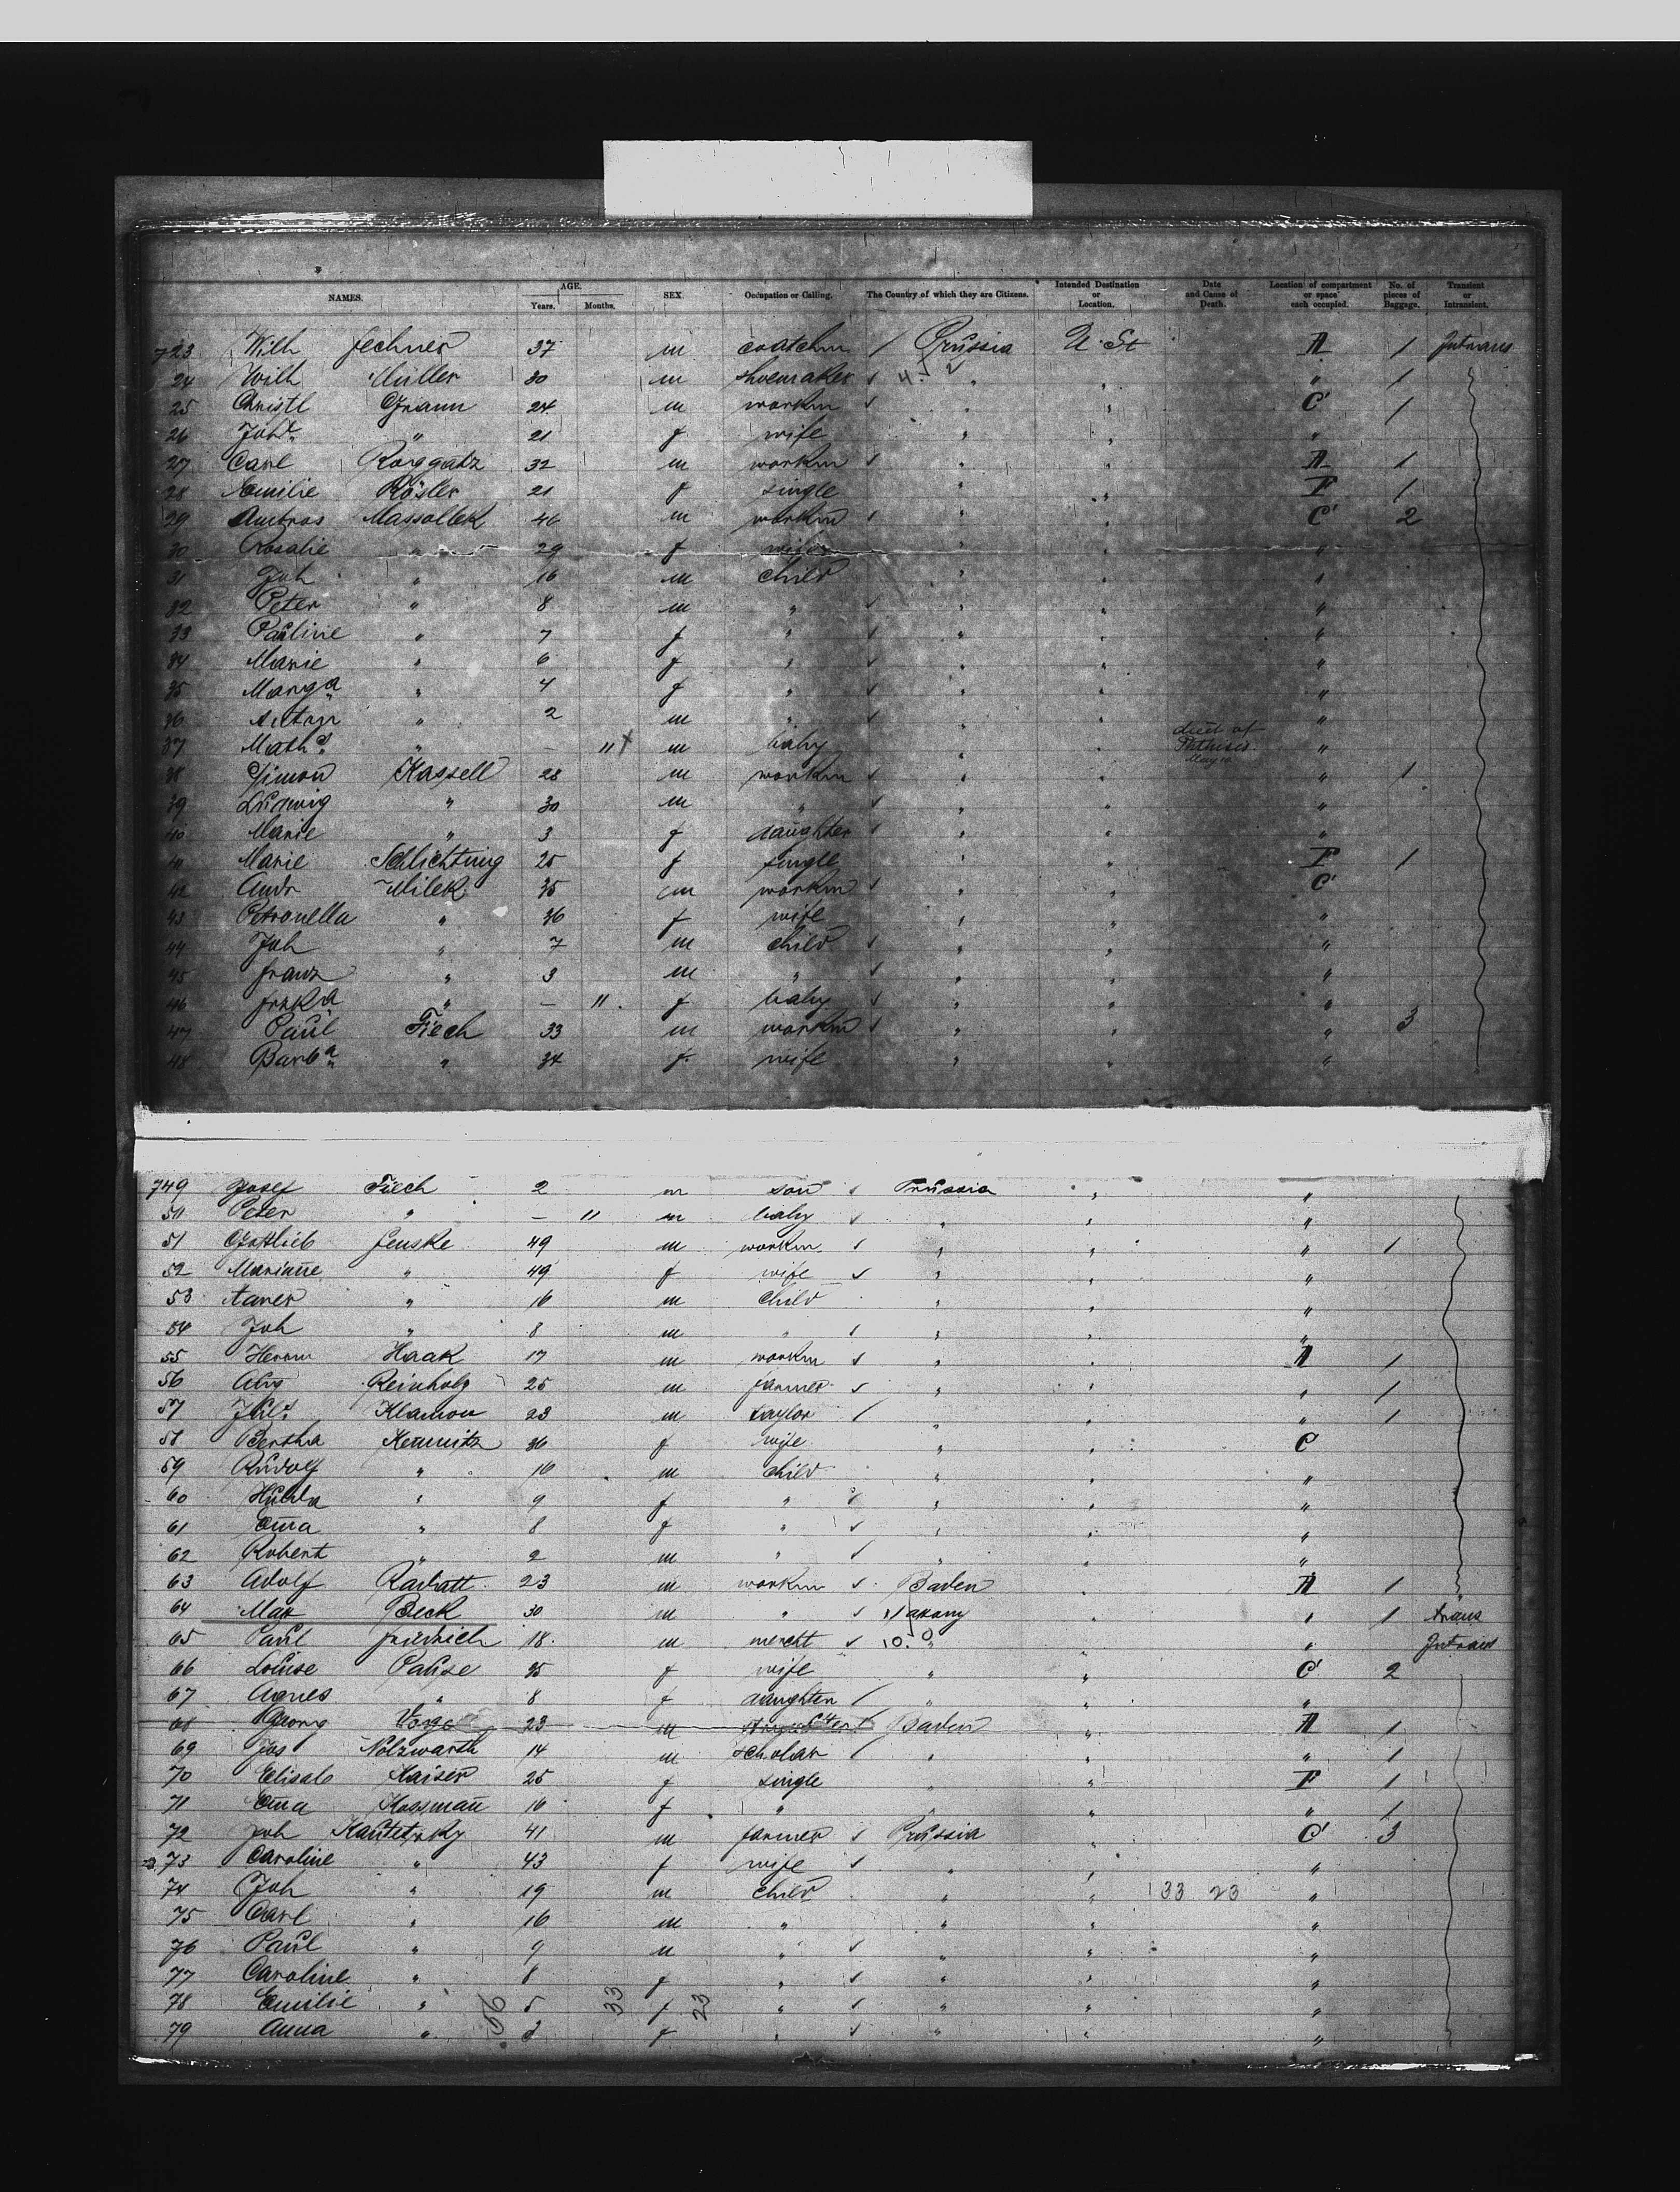 NAMES. AGE. Years. Months. SEX Occupation or Calling. The Country of which they are Citizens. Intended Destination or Location. Date and Cause of Death. Location of compartment or space each occupied. No. of pieces of Baggage. Transient or Intransient.
723 Wilh Jechner 37 m coatchm / Prussia U. St A 1 Intrans
24 Wilh Müller 30 m shoemaker " " " 1
25 Christl Gramm 24 m workm " " C 1
26 " 21 f wife " " "
27 Carl Roggatz 32 m workm " " A 1
28 Emilie Rösler 21 f single " " F 1
29 Ambros Massollek 46 m workm " " C 2
30 Rosalie " 29 f wife " " "
31 Joh " 16 m child " " "
32 Peter " 8 m " " " "
33 Pauline " 7 f " " " "
34 Marie " 6 f " " " "
35 Marga " 4 f " " " "
36 Anton " 2 m " " " "
37 Maths " – 11 m baby " " died of Phthisis May "
38 Simon Kassell 28 m workm " " " 1
39 Ludwig " 30 m " " " "
40 Marie " 3 f daughter " " "
41 Marie Schlichting 25 f single " " F 1
42 Andr Milek 35 m workm " " C
43 Petronella " 36 f wife " " "
44 Joh " 7 m child " " "
45 Franz " 3 m " " " "
46 " – 11 f baby " " "
47 Paul Fiech 33 m workm " " " 3
48 Barba " 34 f wife " " "
749 Josef Fiech 2 m son Prussia " "
50 Peter " – 11 m baby " " "
51 Gottlieb Jenske 49 m workm " " " 1
52 Marianne " 49 f wife " " "
53 " 16 m child " " "
54 Joh " 8 m " " " "
55 Herm Haak 17 m workm " " A 1
56 Aug Reinholz 25 m farmer " " " 1
57 Klamon 23 m taylor / " " " 1
58 Bertha Kemnitz 36 f wife " " C
59 Rudolf " 10 m child " " "
60 Hulda " 9 f " " " "
61 Em̄a " 8 f " " " "
62 Robert " 2 m " " " "
63 Adolf 23 m workm Baden " A 1
64 Max Beck 30 m " Saxony " " 1 trans
65 Paul Friedrich 18 m mercht 10.0 " " " Intrans
66 Louise Pause 35 f wife " " C 2
67 Agnes " 8 f daughter / " " "
68 Georg 23 m Baden " A 1
69 Jos Nolzwarth 14 m scholar / " " " 1
70 Elisab Kaiser 25 f single " " F 1
71 Em̄a Kossman̄ 16 f " " " " 1
72 Joh Kautetzky 41 m farmer Prussia " C 3
73 Caroline " 43 f wife " " "
74 Joh " 19 m child " " 33 23 "
75 Carl " 16 m " " " "
76 Paul " 9 m " " " "
77 Caroline " 8 f " " " "
78 Emilie " 5 f " " " "
79 Anna " f " " " "
56 33 23